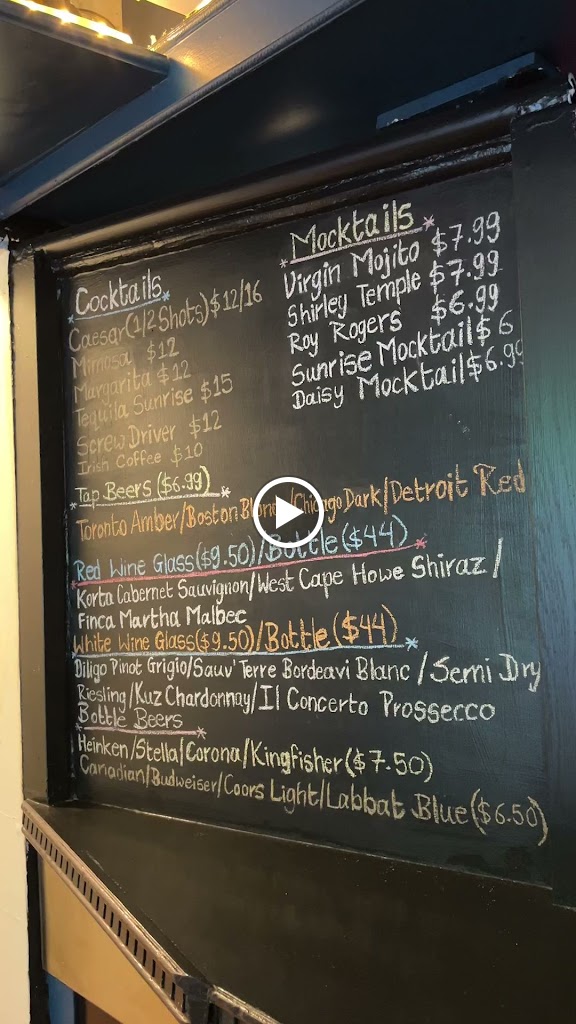 Cocktails
Caesar(1/2 Shots) $12/16
Mimosa $12
Margarita $12
Tequila Sunrise $15
Screw Driver $12
Irish Coffee $10
Mocktails
Virgin Mojito $7.99
Shirley Temple $7.99
Roy Rogers $6.99
Sunrise Mocktail $6
Daisy Mocktail $6.99
Tap Beers ($6.99)
Toronto Amber/Boston Blond/Chicago Dark/Detroit Red
Red Wine Glass($9.50)/Bottle($44)
Korta Cabernet Sauvignon/West Cape Howe Shiraz/
Finca Martha Malbec
White Wine Glass($9.50)/Bottle($44)
Diligo Pinot Grigio/Sauv' Terre Bordeavi Blanc/Semi Dry
Riesling/Kuz Chardonnay/Il Concerto Prossecco
Bottle Beers
Heinken/Stella/Corona/Kingfisher($7.50)
Canadian/Budweiser/Coors Light/Labbat Blue($6.50)